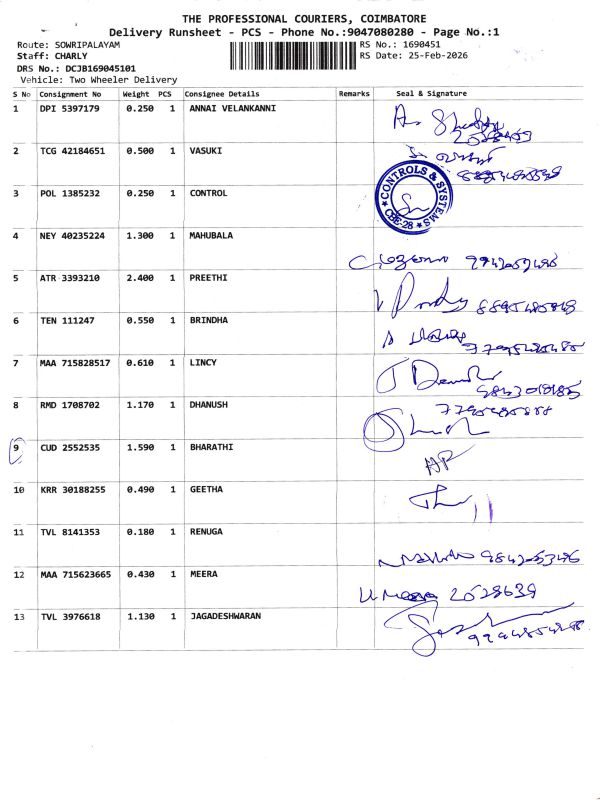 THE PROFESSIONAL COURIERS, COIMBATORE
Delivery Runsheet - PCS - Phone No.:9047080280 - Page No.:1
Route: SOWRIPALAYAM RS No.: 1690451
Staff: CHARLY RS Date: 25-Feb-2026
DRS No.: DCJB169045101
Vehicle: Two Wheeler Delivery
S No Consignment No Weight PCS Consignee Details Remarks Seal & Signature
1 DPI 5397179 0.250 1 ANNAI VELANKANNI
2 TCG 42184651 0.500 1 VASUKI
3 POL 1385232 0.250 1 CONTROL
CONTROLS & SYSTEMS
CBE-28
4 NEY 40235224 1.300 1 MAHUBALA
5 ATR 3393210 2.400 1 PREETHI
6 TEN 111247 0.550 1 BRINDHA
7 MAA 715828517 0.610 1 LINCY
8 RMD 1708702 1.170 1 DHANUSH
9 CUD 2552535 1.590 1 BHARATHI
10 KRR 30188255 0.490 1 GEETHA
11 TVL 8141353 0.180 1 RENUGA
12 MAA 715623665 0.430 1 MEERA
U. Meera 2528639
13 TVL 3976618 1.130 1 JAGADESHWARAN